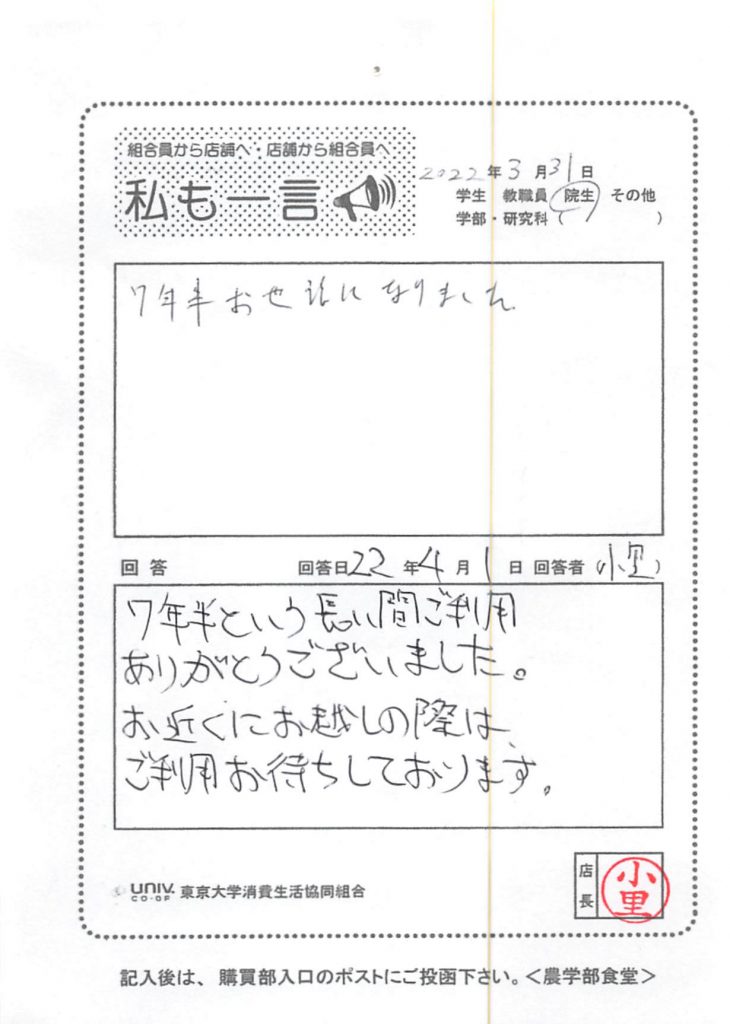 組合員から店舗へ・店舗から組合員へ
私も一言
2022年3月31日
学生 教職員 院生 その他
学部・研究科( )
7年半お世話になりました
回答 回答日22年4月1日 回答者(小里)
7年半という長い間ご利用
ありがとうございました。
お近くにお越しの際は、
ご利用お待ちしております。
UNIV. CO-OP 東京大学消費生活協同組合
店長 小里
記入後は、購買部入口のポストにご投函下さい。<農学部食堂>